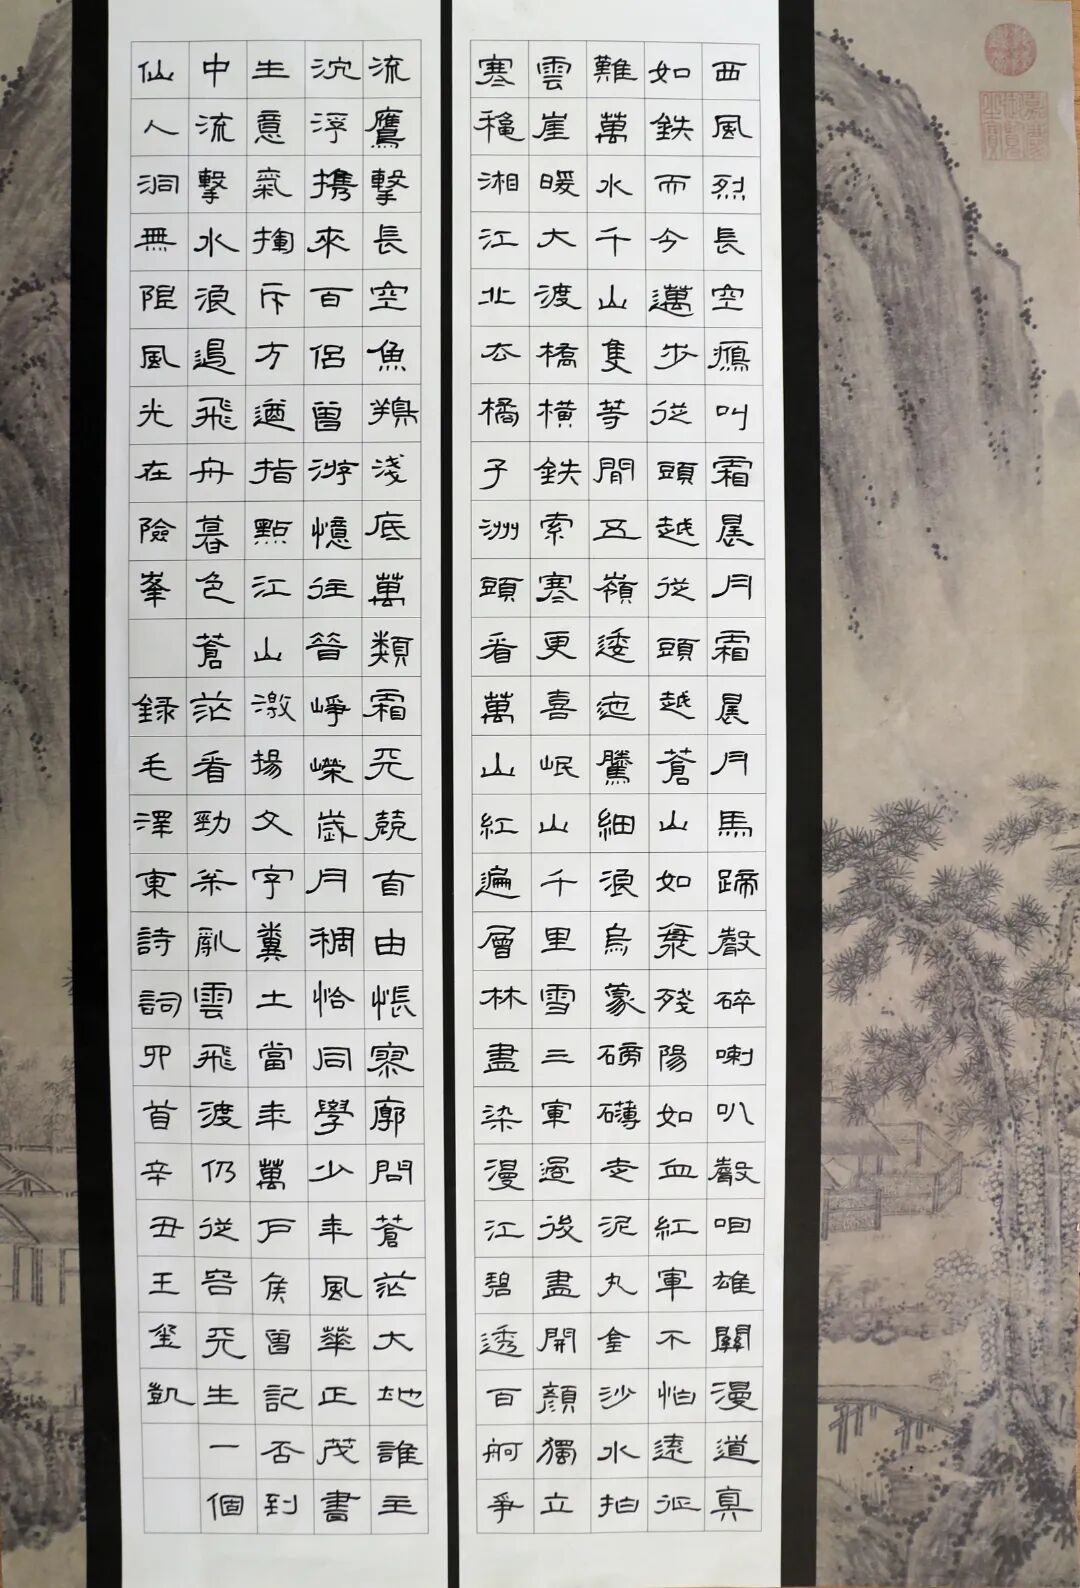 西風烈長空鴈叫霜晨月霜晨月馬蹄聲碎喇叭聲咽雄關漫道真
如鉄而今邁步從頭越從頭越蒼山如海殘陽如血紅軍不怕遠征
難萬水千山隻等閒五嶺逶迤騰細浪烏蒙磅礴走泥丸金沙水拍
雲崖暖大渡橋橫鉄索寒更喜岷山千里雪三軍過後盡開顏獨立
寒穐湘江北去橘子洲頭看萬山紅遍層林盡染漫江碧透百舸爭
流鷹擊長空魚翔淺底萬類霜天競自由悵寥廓問蒼茫大地誰主
沉浮携來百侶曾游憶往昔崢嶸歲月稠恰同學少年風華正茂書
生意氣揮斥方遒指點江山激揚文字糞土當年萬戶侯曾記否到
中流擊水浪遏飛舟暮色蒼茫看勁松亂雲飛渡仍從容天生一個
仙人洞無限風光在險峯 錄毛澤東詩詞四首辛丑王玺凱